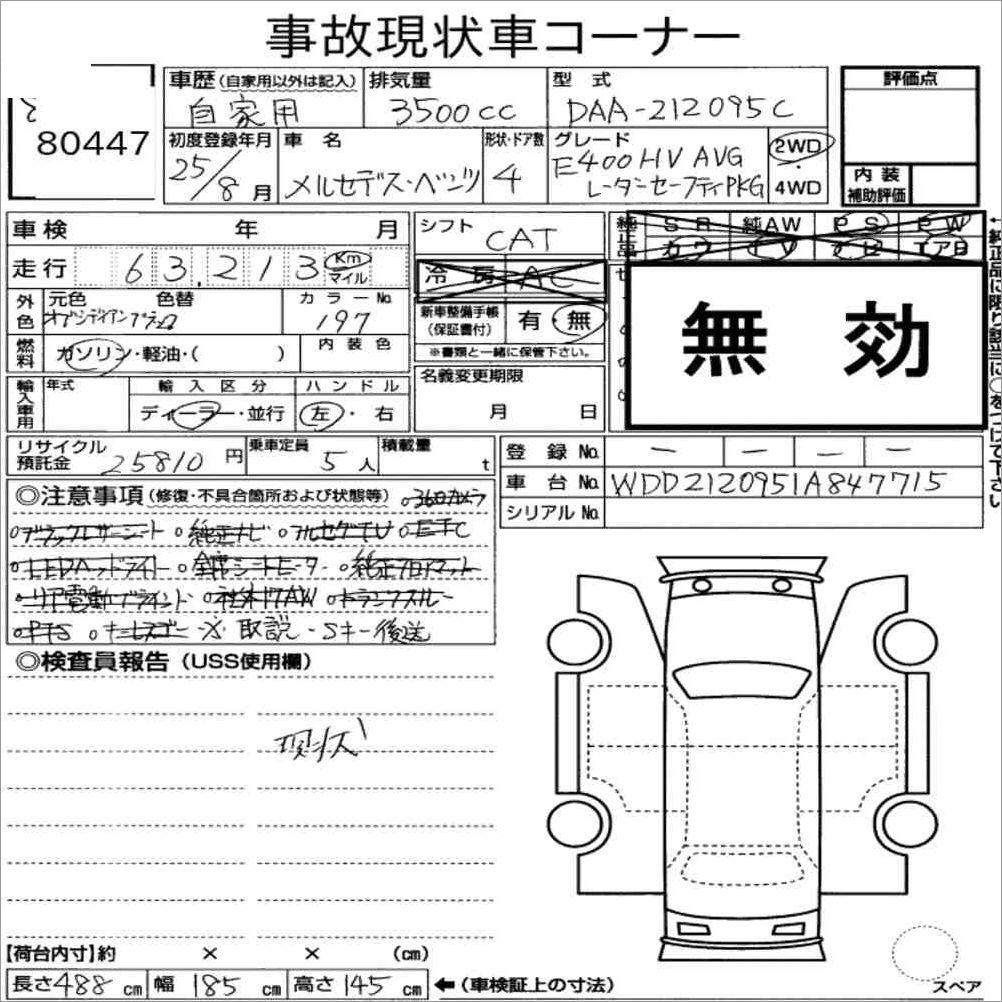 事故現状車コーナー
80447
車歴(自家用以外は記入) 排気量 型式 評価点
自家用 3500CC DAA-212095C
初度登録年月 車名 形状・ドア数 グレード 2WD・4WD
25/8月 メルセデス・ベンツ 4 E400HV AVG
レーダーセーフティPKG
内装補助評価
車検 年 月 シフト CAT
純正品 SR 純AW PS PW
カワ TV ナビ エアB
走行 63,213 Km マイル
冷房 AC
外色 元色 色替 カラーNo.
オブシディアンブラック 197
新車整備手帳(保証書付) 有・無
※書類と一緒に保管下さい。
無効
燃料 ガソリン・軽油・( ) 内装色
輸入車用 年式 輸入区分 ハンドル
ディーラー・並行 左・右
名義変更期限
月 日
←純正品に限り該当に○をつけて下さい
リサイクル預託金 25810円 乗車定員 5人 積載量 t
登録No. ー ー ー ー
車台No. WDD2120951A847715
シリアルNo.
◎注意事項(修復・不具合箇所および状態等) ○360カメラ
○ブラックレザーシート ○純正ナビ ○フルセグTV ○ETC
○LEDヘッドライト ○全席シートヒーター ○純正フロアマット
○リア電動ブラインド ○社外17AW ○トランクスルー
○PTS ○キーレスゴー ※取説・Sキー後送
◎検査員報告(USS使用欄)
現状
【荷台内寸】約 × × (cm)
長さ488cm 幅185cm 高さ145cm ←(車検証上の寸法)
スペア